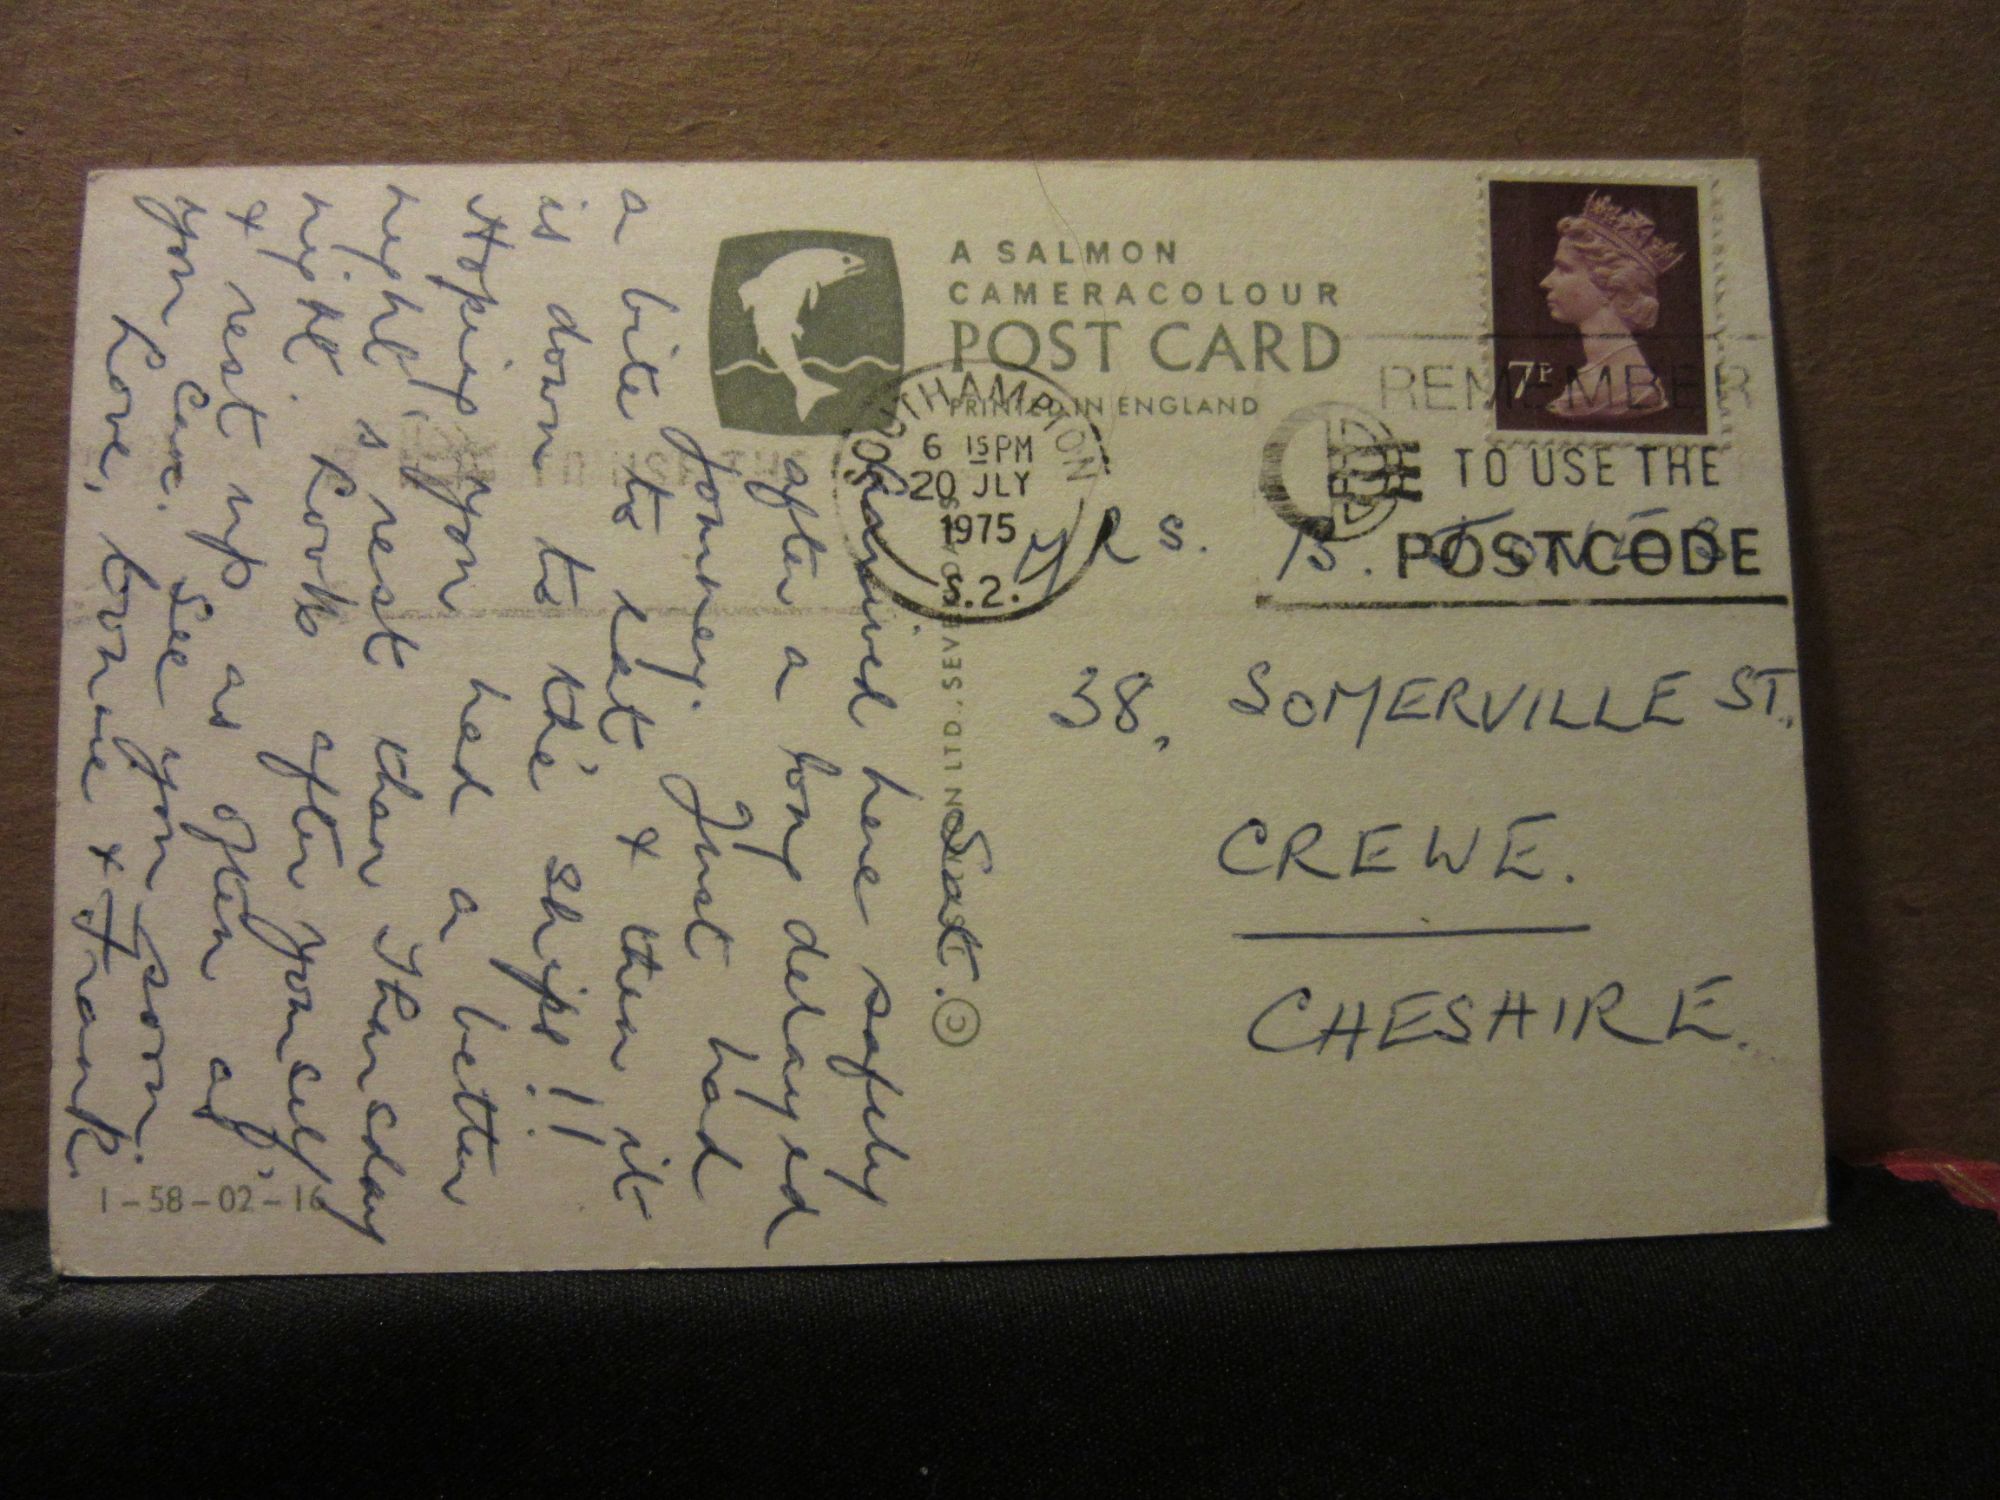 A SALMON
CAMERACOLOUR
POST CARD
PRINTED IN ENGLAND
7P
SOUTHAMPTON
6 15PM
20 JLY
1975
S.2.
REMEMBER
TO USE THE
POSTCODE
MRS. B. JONES
38, SOMERVILLE ST.
CREWE.
CHESHIRE.
Sat.
©
Arrived here safely
after a long delayed
journey. Just had
a bite to eat & then it
is down to the ships!!
Hoping you had a better
night's rest than Thursday
night. Look after yourself
& rest up as often as
you can. See you soon.
Love, & Frank.
1-58-02-16